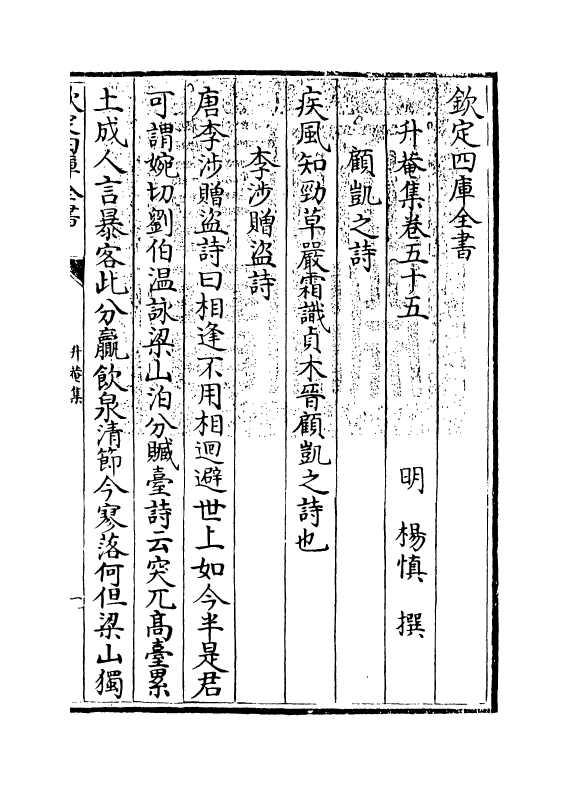 欽定四庫全書
升菴集卷五十五
明 楊慎 撰
顧凱之詩
疾風知勁草嚴霜識貞木晉顧凱之詩也
李涉贈盜詩
唐李涉贈盜詩曰相逢不用相迴避世上如今半是君
可謂婉切劉伯温詠梁山泊分贓臺詩云突兀髙臺累
土成人言暴客此分贏飲泉清節今寥落何但梁山獨
欽定四庫全書
升菴集
一